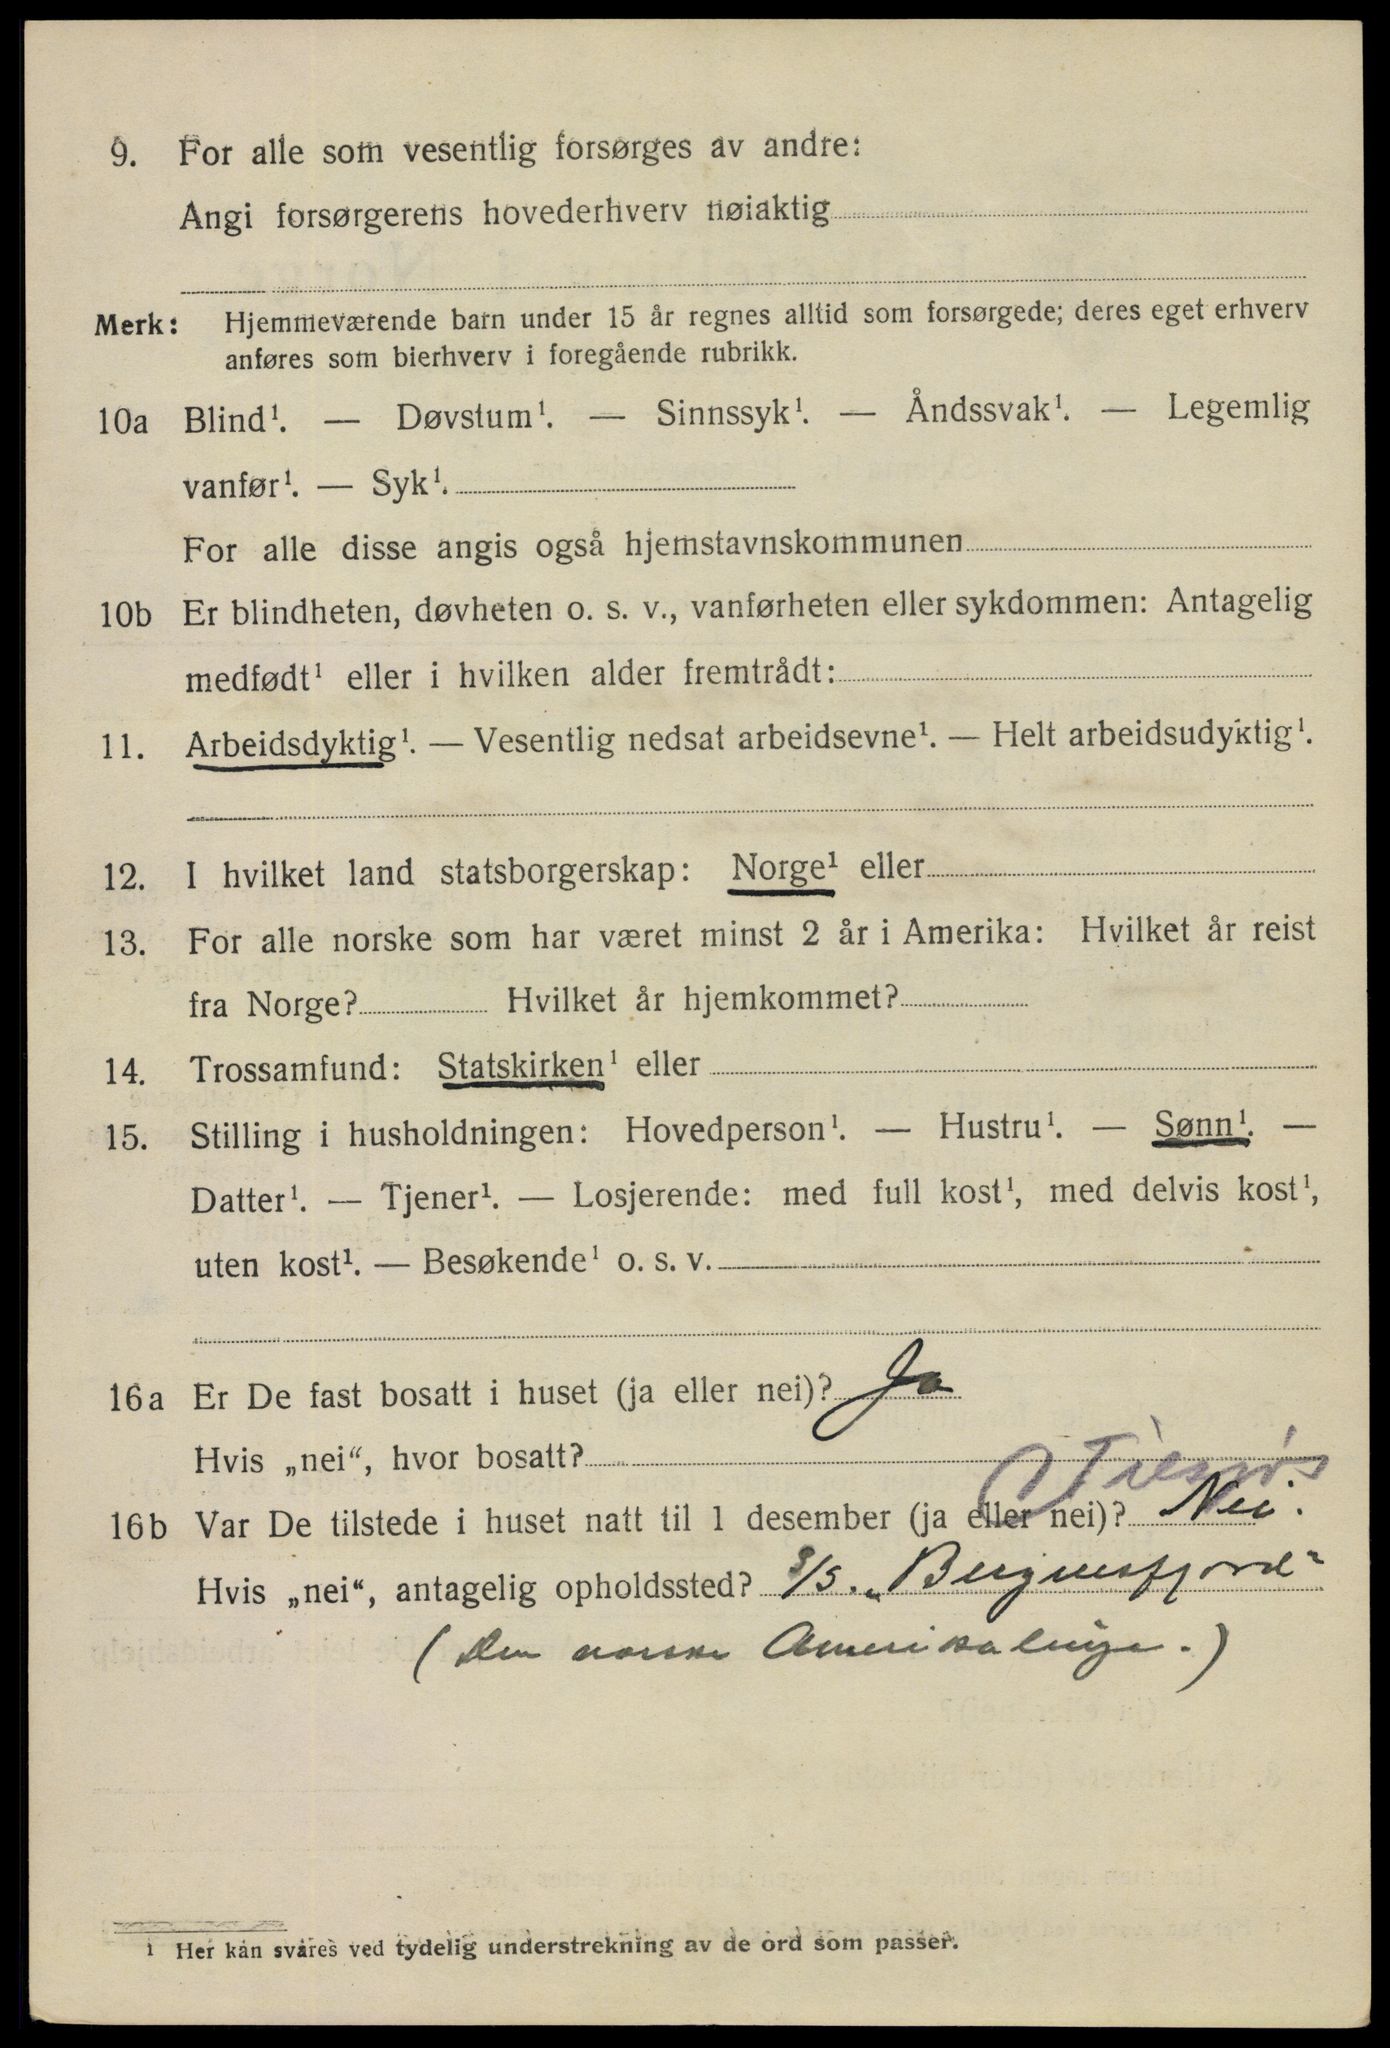 9. For alle som vesentlig forsørges av andre:
Angi forsørgerens hovederhverv nøiaktig
Merk: Hjemmeværende barn under 15 år regnes alltid som forsørgede; deres eget erhverv
anføres som bierhverv i foregående rubrikk.
10a Blind¹. — Døvstum¹. — Sinnssyk¹. — Åndssvak¹. — Legemlig
vanfør¹. — Syk¹.
For alle disse angis også hjemstavnskommunen
10b Er blindheten, døvheten o. s. v., vanførheten eller sykdommen: Antagelig
medfødt¹ eller i hvilken alder fremtrådt:
11. Arbeidsdyktig¹. — Vesentlig nedsat arbeidsevne¹. — Helt arbeidsudyktig¹.
12. I hvilket land statsborgerskap: Norge¹ eller
13. For alle norske som har været minst 2 år i Amerika: Hvilket år reist
fra Norge? Hvilket år hjemkommet?
14. Trossamfund: Statskirken¹ eller
15. Stilling i husholdningen: Hovedperson¹. — Hustru¹. — Sønn¹. —
Datter¹. — Tjener¹. — Losjerende: med full kost¹, med delvis kost¹,
uten kost¹. — Besøkende¹ o. s. v.
16a Er De fast bosatt i huset (ja eller nei)? Ja
Hvis „nei“, hvor bosatt?
16b Var De tilstede i huset natt til 1 desember (ja eller nei)? Nei.
Hvis „nei“, antagelig opholdssted? S/S. „Bergensfjord"
(Den norske Amerikalinje.)
1 Her kan svares ved tydelig understrekning av de ord som passer.